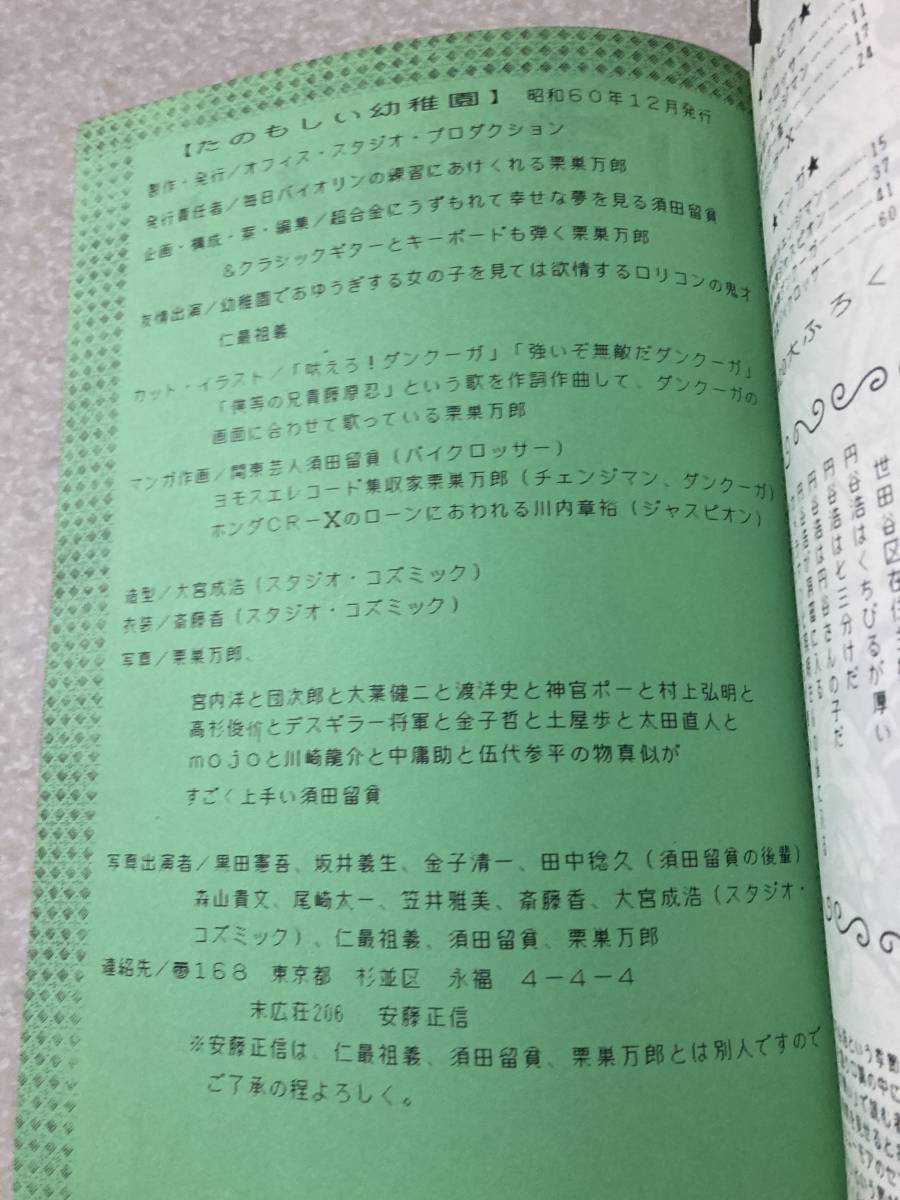 【たのもしい幼稚園】 昭和60年12月発行
製作・発行/オフィス・スタジオ・プロダクション
発行責任者/毎日バイオリンの練習にあけくれる栗巣万郎
企画・構成・案・編集/超合金にうずもれて幸せな夢を見る須田留貧
&クラシックギターとキーボードも弾く栗巣万郎
友情出演/幼稚園でおゆうぎする女の子を見ては欲情するロリコンの鬼才
仁最祖義
カット・イラスト/「吠えろ!ダンクーガ」「強いぞ無敵だダンクーガ」
「僕等の兄貴藤原忍」という歌を作詞作曲して、ダンクーガの
画面に合わせて歌っている栗巣万郎
マンガ作画/関東芸人須田留貧(バイクロッサー)
ヨモスエレコード集収家栗巣万郎(チェンジマン、ダンクーガ)
ホンダCR-Xのローンにおわれる川内章裕(ジャスピオン)
造型/大宮成浩(スタジオ・コズミック)
衣装/斎藤香(スタジオ・コズミック)
写真/栗巣万郎、
宮内洋と団次郎と大葉健二と渡洋史と神官ポーと村上弘明と
高杉俊价とデスギラー将軍と金子哲と土屋歩と太田直人と
mojoと川崎龍介と中庸助と伍代参平の物真似が
すごく上手い須田留貧
写真出演者/黒田憲吾、坂井義生、金子清一、田中稔久(須田留貧の後輩)
森山貴文、尾崎太一、笠井雅美、斎藤香、大宮成浩(スタジオ・
コズミック)、仁最祖義、須田留貧、栗巣万郎
連絡先/〠168 東京都 杉並区 永福 4-4-4
末広荘206 安藤正信
※安藤正信は、仁最祖義、須田留貧、栗巣万郎とは別人ですので
ご了承の程よろしく。
11
17
24
X
★マンガ★
15
37
41
60
大ふろく
世田谷区在住
円谷浩はくちびるが厚い
円谷浩はと三分けだ
円谷浩は円谷さんの子だ